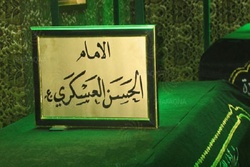 الإمام
الحسن العسكري ع